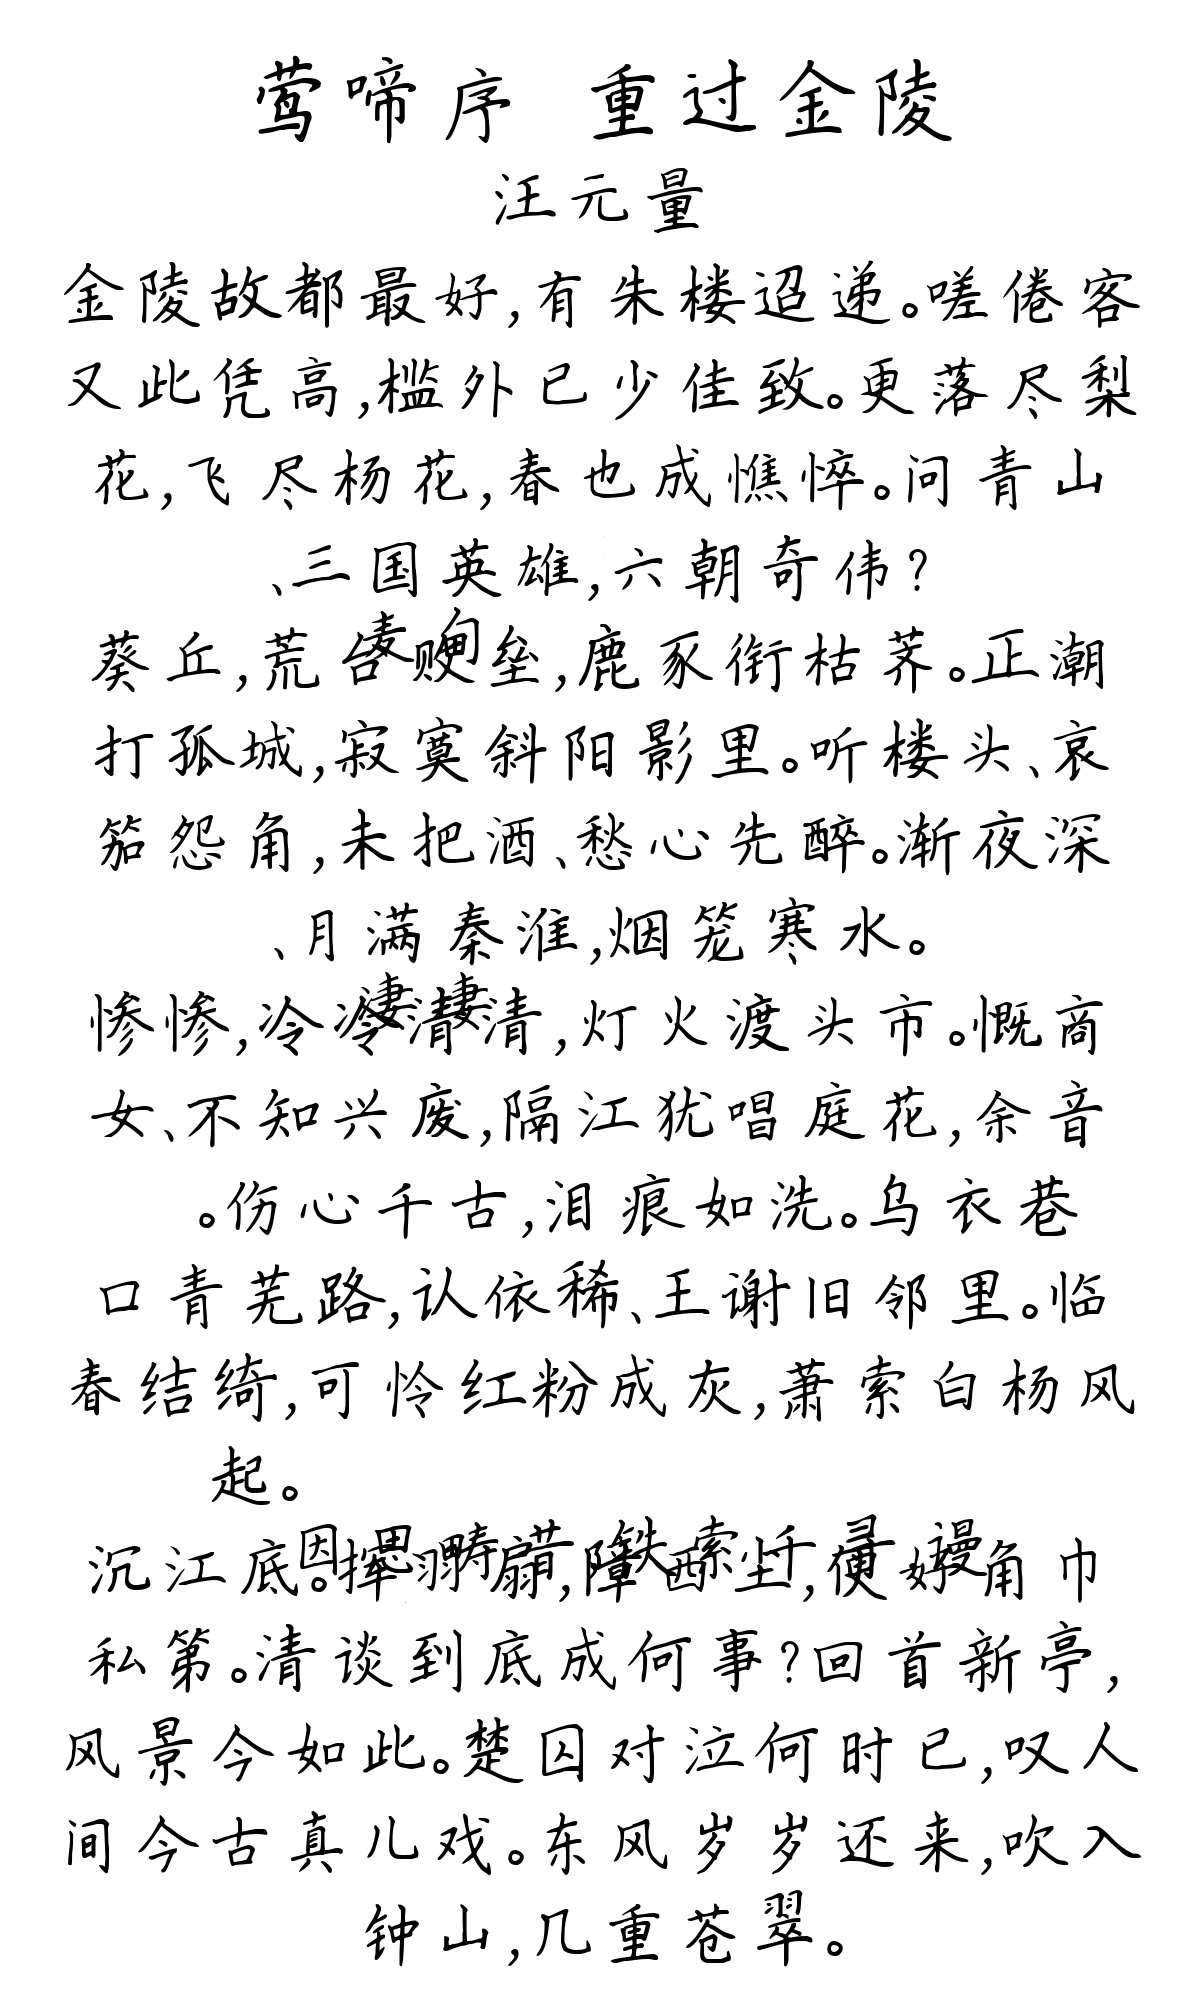 莺啼序 重过金陵
汪元量
金陵故都最好,有朱楼迢递。嗟倦客
又此凭高,槛外已少佳致。更落尽梨
花,飞尽杨花,春也成憔悴。问青山
、三国英雄,六朝奇伟?
麦甸
葵丘,荒台败垒,鹿豕衔枯荠。正潮
打孤城,寂寞斜阳影里。听楼头、哀
笳怨角,未把酒、愁心先醉。渐夜深
、月满秦淮,烟笼寒水。
凄凄
惨惨,冷冷清清,灯火渡头市。慨商
女、不知兴废,隔江犹唱庭花,余音
。伤心千古,泪痕如洗。乌衣巷
口青芜路,认依稀、王谢旧邻里。临
春结绮,可怜红粉成灰,萧索白杨风
起。
因思畴昔铁索千寻谩
沉江底。挥羽扇,障西尘,便好角巾
私第。清谈到底成何事?回首新亭,
风景今如此。楚囚对泣何时已,叹人
间今古真儿戏。东风岁岁还来,吹入
钟山,几重苍翠。